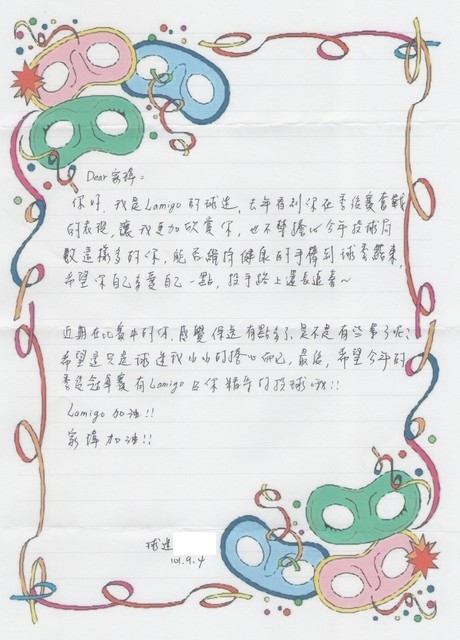 Dear 家瑋：
你好，我是Lamigo的球迷，去年看到你在季後賽奮戰
的表現，讓我更加欣賞你，也不禁擔心今年投球局
數這樣多的你，能否維持健康的手臂到球季結束，
希望你自己多愛自己一點，投手路上還長遠著～
近期在比賽中的你，感覺保送有點多了，是不是有些累了呢?
希望這只是球迷我小小的擔心而已，最後，希望今年的
季後冠軍賽有Lamigo且你精彩的投球哦!!
Lamigo 加油!!
家瑋加油!!
球迷
101.9.4